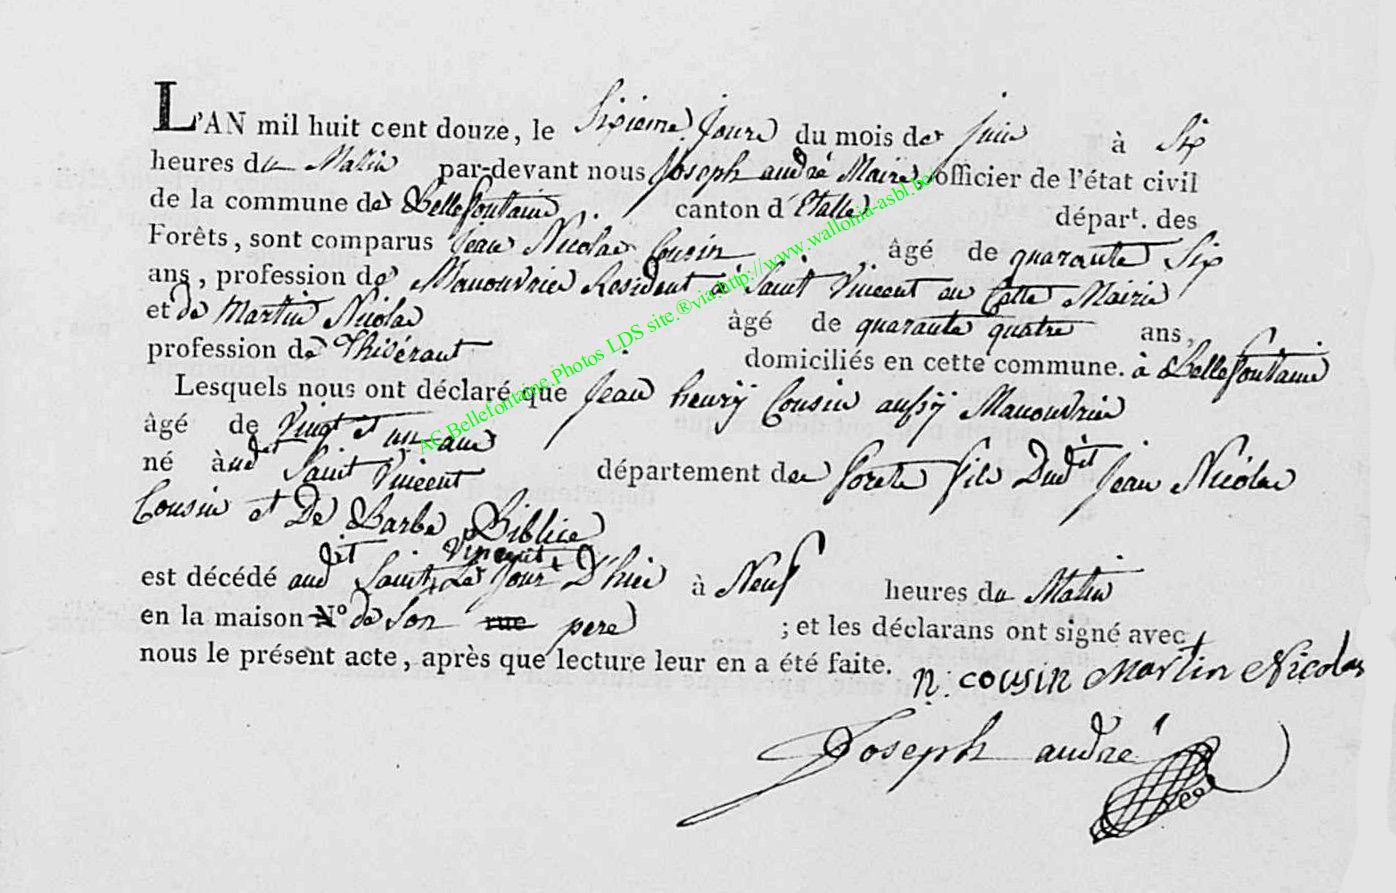 L'AN mil huit cent douze, le Sixieme Jour du mois de juin à Six
heures du Matin par-devant nous Joseph andré Maire officier de l'état civil
de la commune de Bellefontaine canton d'Etalle départ. des
Forêts, sont comparus Jean Nicolas Cousin, âgé de quarante Six
ans, profession de Manouvrier Resident à Saint Vincent en Cette Mairie
et de Martin Nicolas âgé de quarante quatre ans,
profession de Thisérant domiciliés en cette commune. à Bellefontaine
Lesquels nous ont déclaré que Jean henry Cousin aussy Manouvrier
âgé de Vingt et un ans
né à udit Saint Vincent département de forets fils Dudit Jean Nicolas
Cousin et De Barbe
est décédé audit Saint Vincent Le Jour D'hier à Neuf heures du Matin
en la maison N° de Son rue pere ; et les déclarans ont signé avec
nous le présent acte, après que lecture leur en a été faite.
n. cousin Martin Nicolas
Joseph andré
AC.Bellefontaine.Photos LDS site.®via.http://www.wallonia-asbl.be/